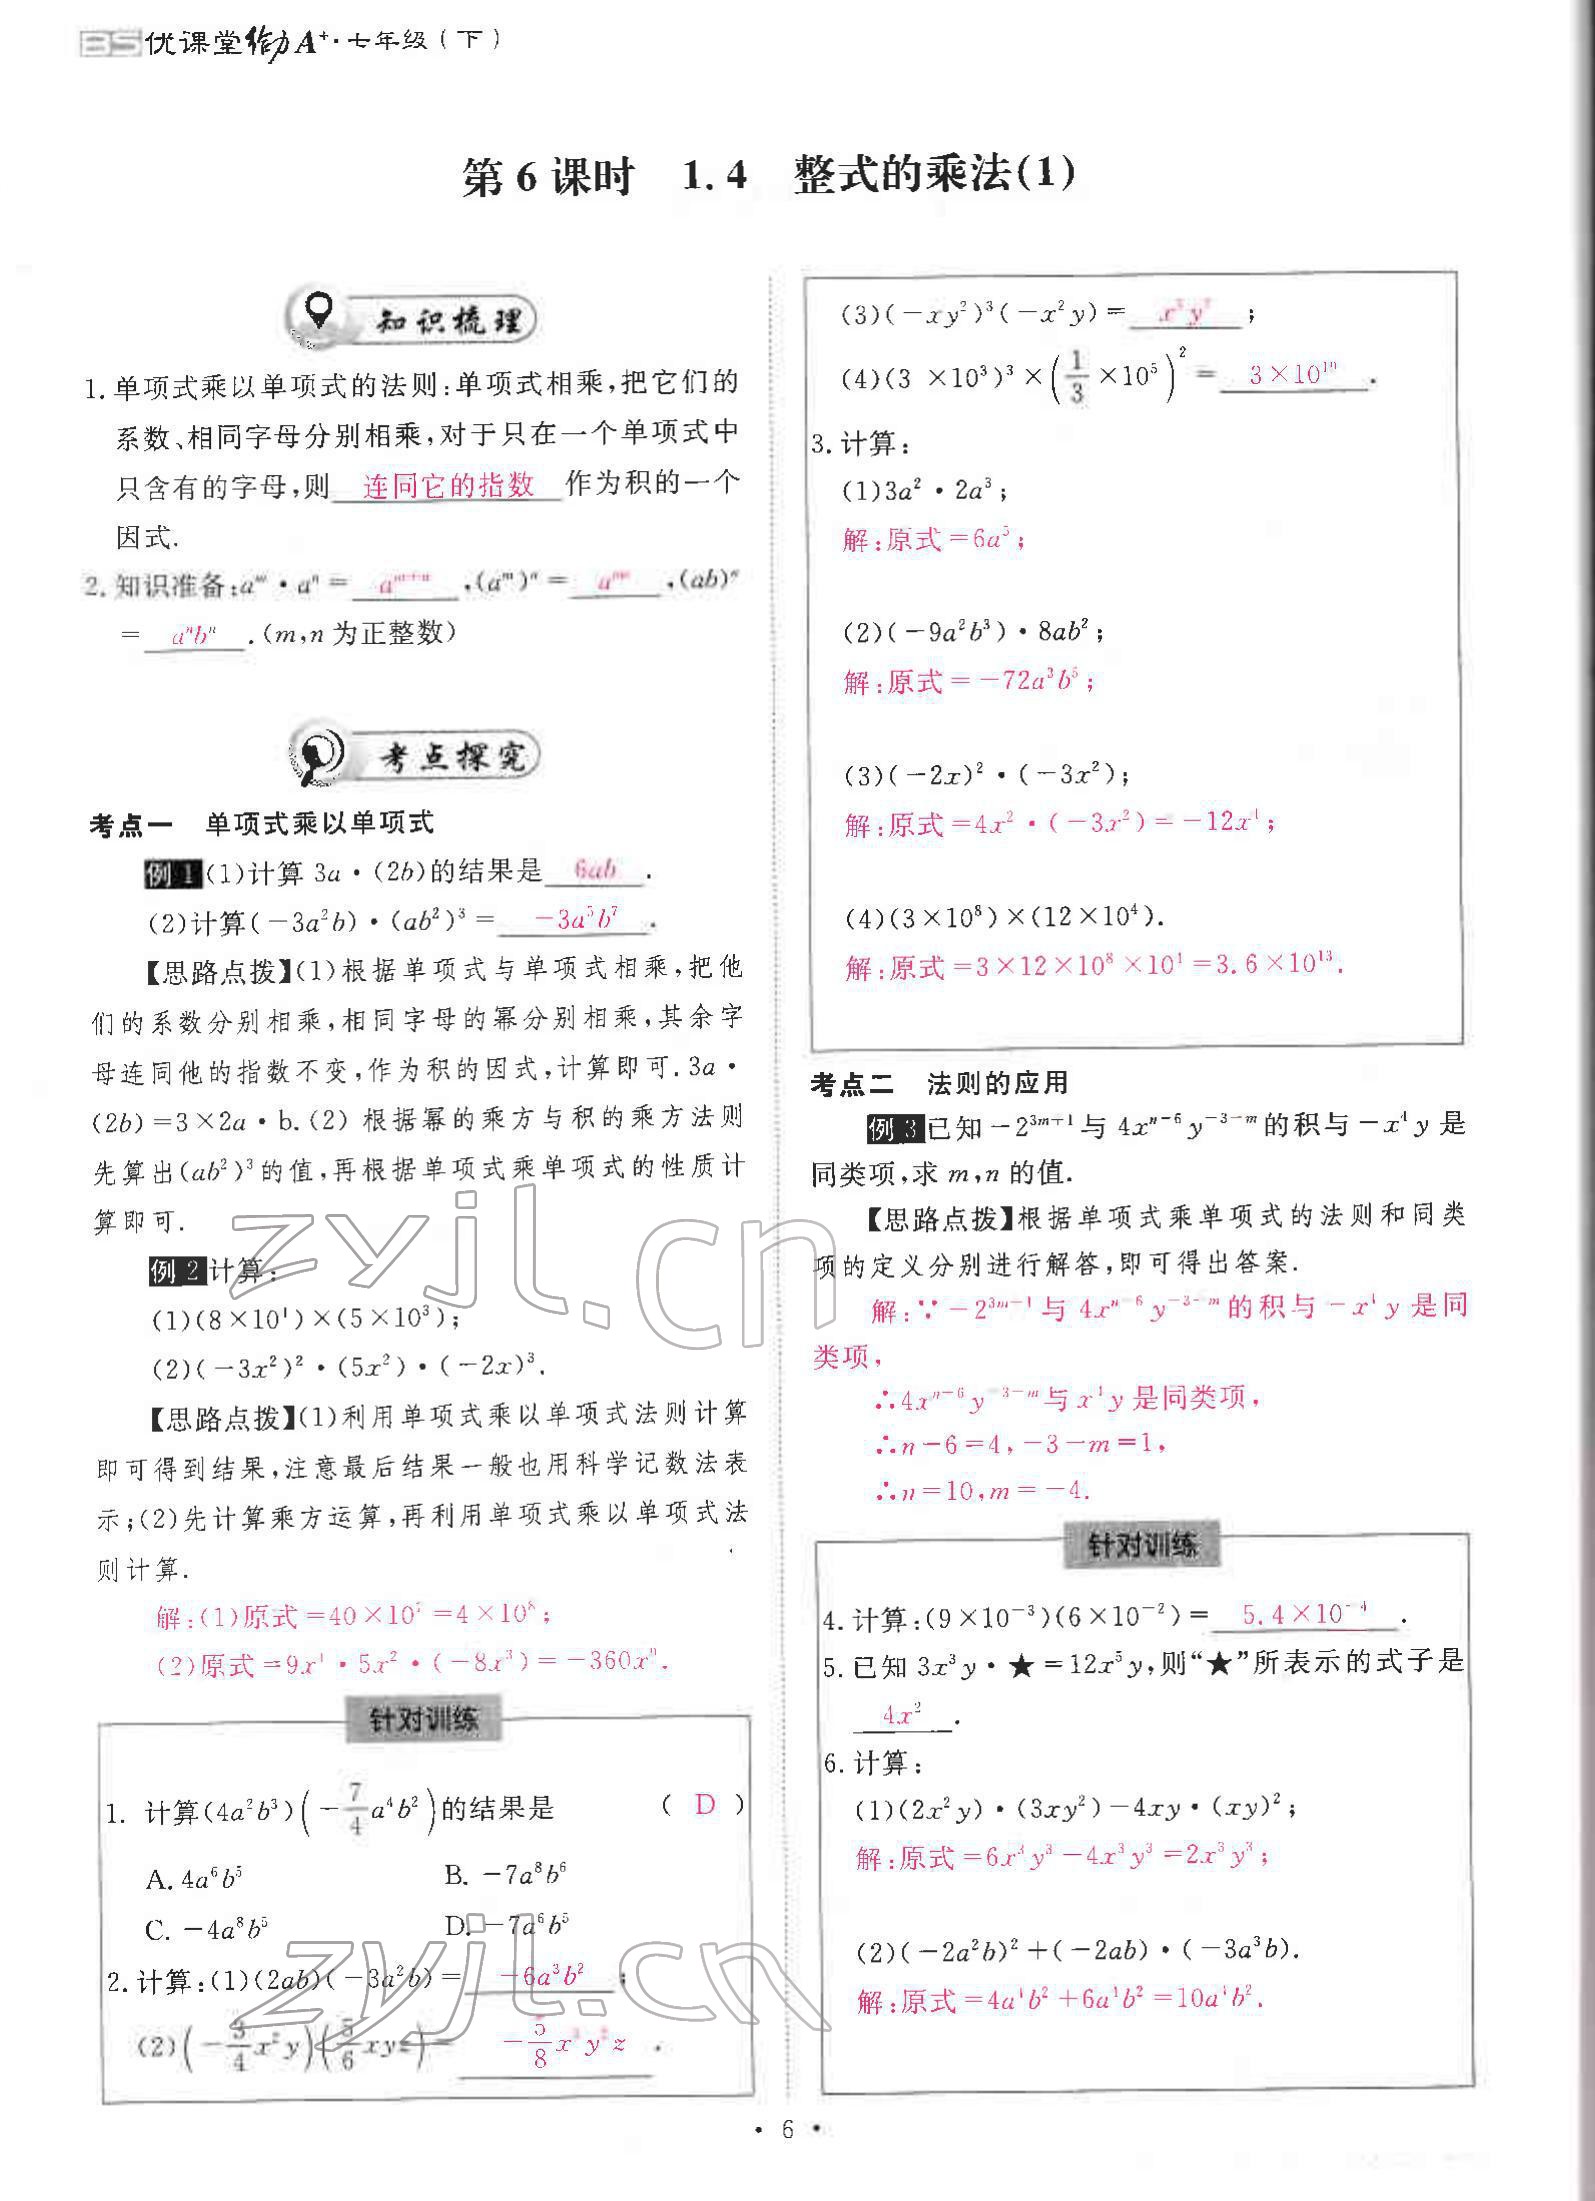 BS优课堂给力A⁺·七年级(下)
第6课时 1.4 整式的乘法(1)
知识梳理
1.单项式乘以单项式的法则:单项式相乘,把它们的
系数、相同字母分别相乘,对于只在一个单项式中
只含有的字母,则 连同它的指数 作为积的一个
因式.
2.知识准备:aᵐ·aⁿ= aᵐ⁺ⁿ ,(aᵐ)ⁿ= aᵐⁿ ,(ab)ⁿ
= aⁿbⁿ .(m,n为正整数)
考点探究
考点一 单项式乘以单项式
例1 (1)计算 3a·(2b)的结果是 6ab .
(2)计算(-3a²b)·(ab²)³= -3a⁵b⁷ .
【思路点拨】(1)根据单项式与单项式相乘,把他
们的系数分别相乘,相同字母的幂分别相乘,其余字
母连同他的指数不变,作为积的因式,计算即可.3a·
(2b)=3×2a·b.(2)根据幂的乘方与积的乘方法则
先算出(ab²)³的值,再根据单项式乘单项式的性质计
算即可.
例2 计算:
(1)(8×10⁴)×(5×10³);
(2)(-3x²)²·(5x²)·(-2x)³.
【思路点拨】(1)利用单项式乘以单项式法则计算
即可得到结果,注意最后结果一般也用科学记数法表
示;(2)先计算乘方运算,再利用单项式乘以单项式法
则计算.
解:(1)原式=40×10⁷=4×10⁸;
(2)原式=9x⁴·5x²·(-8x³)=-360x⁹.
针对训练
1. 计算(4a²b³)(-7/4a⁴b²)的结果是 ( D )
A. 4a⁶b⁵ B. -7a⁸b⁶
C. -4a⁸b⁵ D. -7a⁶b⁵
2.计算:(1)(2ab)(-3a²b)= -6a³b² ;
(2)(-3/4x²y)(5/6xyz)= -5/8x³y²z .
(3)(-xy²)³(-x²y)= x⁵y⁷ ;
(4)(3 ×10³)³×(1/3×10⁵)²= 3×10¹⁹ .
3.计算:
(1)3a²·2a³;
解:原式=6a⁵;
(2)(-9a²b³)·8ab²;
解:原式=-72a³b⁵;
(3)(-2x)²·(-3x²);
解:原式=4x²·(-3x²)=-12x⁴;
(4)(3×10⁸)×(12×10⁴).
解:原式=3×12×10⁸×10⁴=3.6×10¹³.
考点二 法则的应用
例3 已知-2³ᵐ⁺¹与4xⁿ⁻⁶y⁻³⁻ᵐ的积与-x⁴y是
同类项,求m,n的值.
【思路点拨】根据单项式乘单项式的法则和同类
项的定义分别进行解答,即可得出答案.
解:∵-2³ᵐ⁺¹与4xⁿ⁻⁶y⁻³⁻ᵐ的积与-x⁴y是同
类项,
∴4xⁿ⁻⁶y⁻³⁻ᵐ与x⁴y是同类项,
∴n-6=4,-3-m=1,
∴n=10,m=-4.
针对训练
4.计算:(9×10⁻³)(6×10⁻²)= 5.4×10⁻⁴ .
5.已知3x³y·★=12x⁵y,则“★”所表示的式子是
4x² .
6.计算:
(1)(2x²y)·(3xy²)-4xy·(xy)²;
解:原式=6x³y³-4x³y³=2x³y³;
(2)(-2a²b)²+(-2ab)·(-3a³b).
解:原式=4a⁴b²+6a⁴b²=10a⁴b².
·6·
zyjl.cn
zyjl.cn